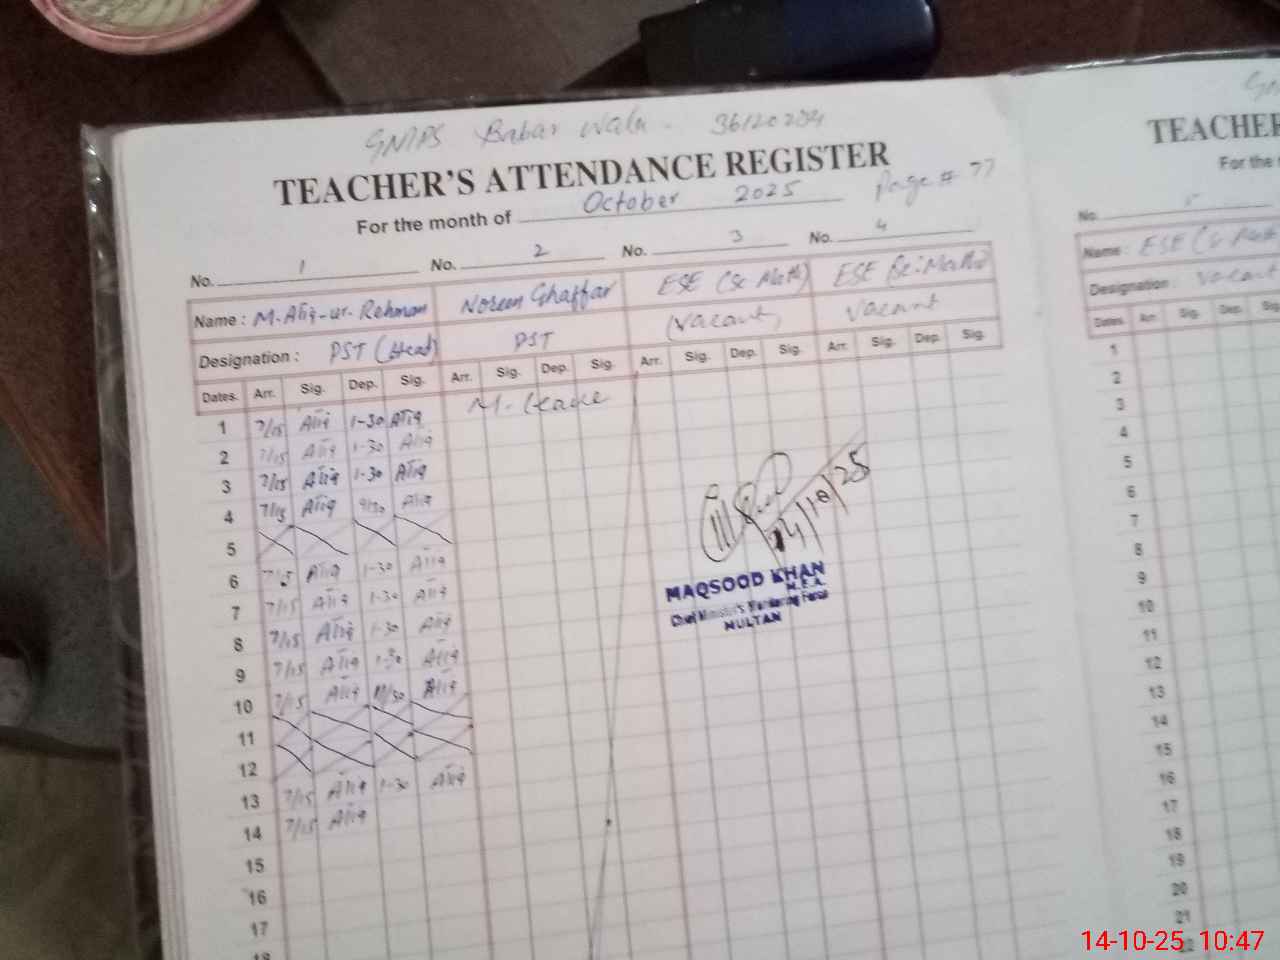 GMPS Babar Wala - 36120284
TEACHER'S ATTENDANCE REGISTER
For the month of October 2025 Page # 77
No. 1 No. 2 No. 3 No. 4
Name : M. Atiq-ur-Rehman Noreen Ghaffar ESE (Sc Math) ESE Sc: Math
Designation : PST (Head) PST (Vacant) Vacant
Dates. Arr. Sig. Dep. Sig. Arr. Sig. Dep. Sig. Arr. Sig. Dep. Sig. Arr. Sig. Dep. Sig.
1 7/15 Atiq 1-30 Atiq M. Leave
2 7/15 Atiq 1-30 Atiq
3 7/15 Atiq 1-30 Atiq
4 7/15 Atiq Atiq
5
6 7/15 Atiq 1-30 Atiq
7 7/15 Atiq 1-30 Atiq
8 7/15 Atiq 1-30 Atiq
9 7/15 Atiq 1-30 Atiq
10 7/15 Atiq 11/30 Atiq
11
12
13 7/15 Atiq 1-30 Atiq
14 7/15 Atiq
15
16
17
18
14/10/25
MAQSOOD KHAN
M.E.A.
Chief Minister's Monitoring Force
MULTAN
TEACHER
For the
No. 5
Name : ESE (Sc Math
Designation : Vacant
Dates. Arr. Sig. Dep.
1
2
3
4
5
6
7
8
9
10
11
12
13
14
15
16
17
18
19
20
21
22
14-10-25 10:47